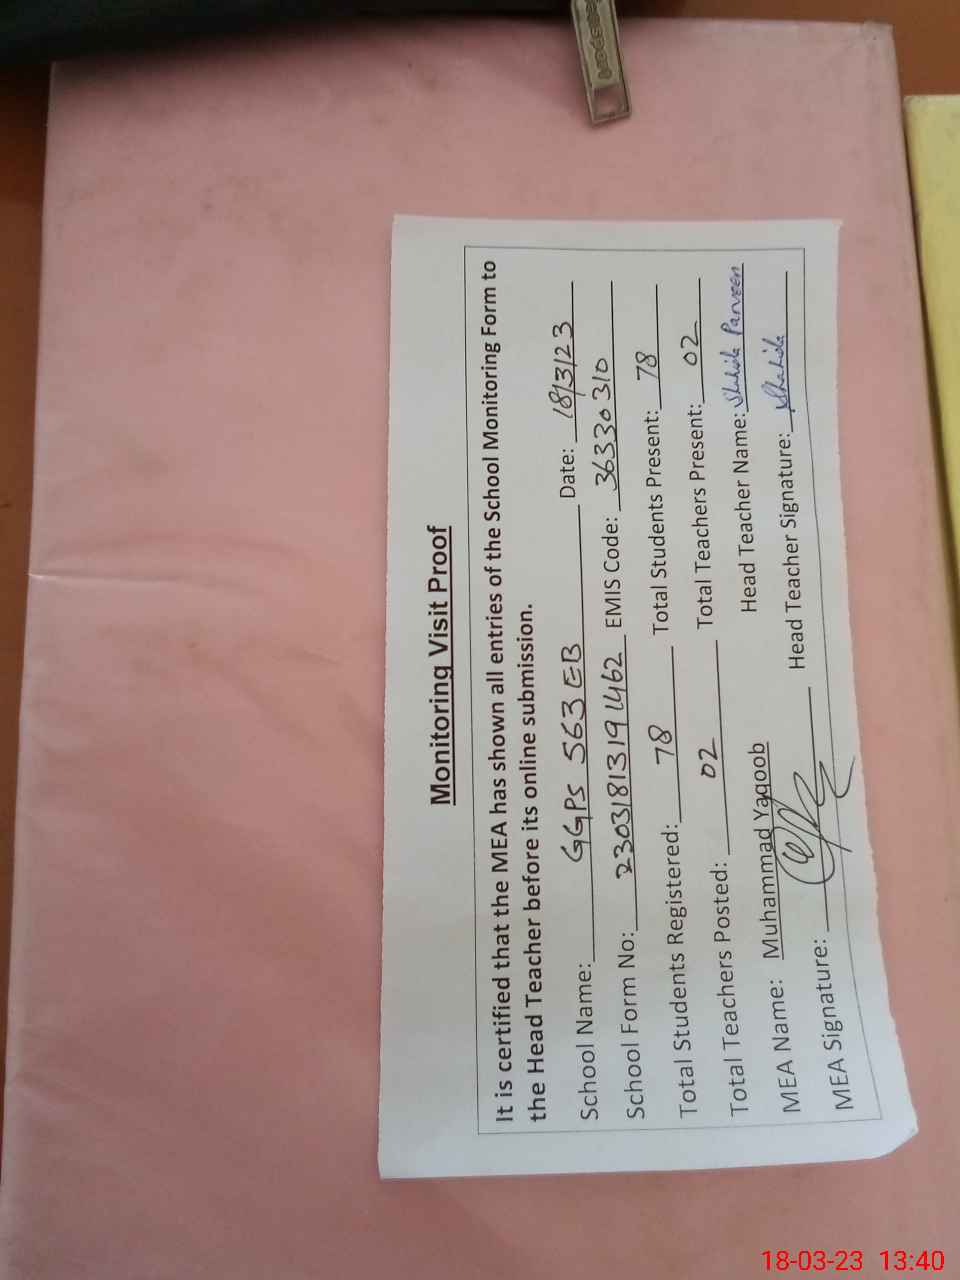 Monitoring Visit Proof
It is certified that the MEA has shown all entries of the School Monitoring Form to
the Head Teacher before its online submission.
School Name: GGPS 563 EB Date: 18/3/23
School Form No: 23031813191462 EMIS Code: 36330310
Total Students Registered: 78 Total Students Present: 78
Total Teachers Posted: 02 Total Teachers Present: 02
MEA Name: Muhammad Yaqoob Head Teacher Name: Shahida Parveen
MEA Signature: Head Teacher Signature: Shahida
18-03-23 13:40